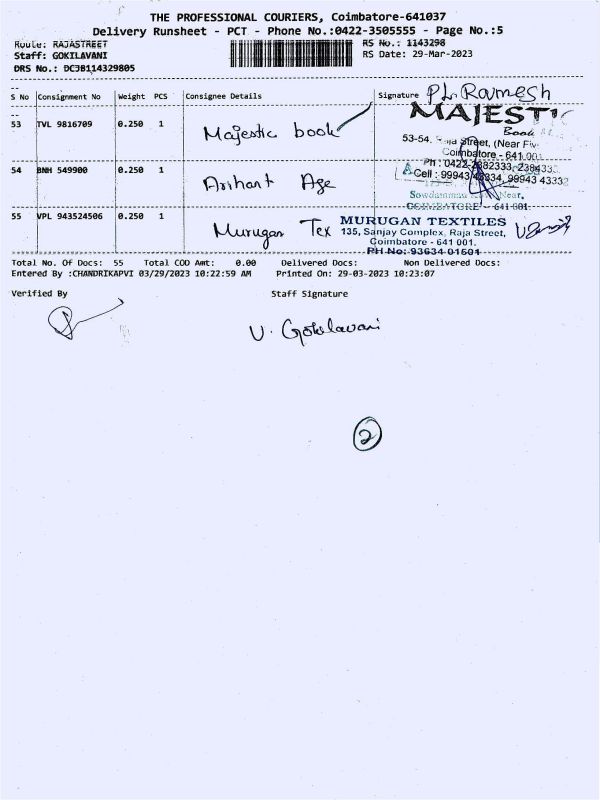 THE PROFESSIONAL COURIERS, Coimbatore-641037
Delivery Runsheet - PCT - Phone No.:0422-3505555 - Page No.:5
Route: RAJASTREET
RS No.: 1143298
Staff: GOKILAVANI
RS Date: 29-Mar-2023
DRS No.: DCJB114329805
S No Consignment No Weight PCS Consignee Details Signature PL. Ramesh
53 TVL 9816709 0.250 1 Majestic book
MAJESTIC
Book
53-54, Raja Street, (Near
Coimbatore - 641 001
54 BNH 549900 0.250 1 Arihant Age
Ph : 0422-2382333, 2384333
Cell : 99943 43334, 99943 43332
Near,
COIMBATORE - 641 001.
55 VPL 943524506 0.250 1 Murugan Tex
MURUGAN TEXTILES
135, Sanjay Complex, Raja Street,
Coimbatore - 641 001.
PH No: 93634 01601
Total No. Of Docs: 55 Total COD Amt: 0.00 Delivered Docs: Non Delivered Docs:
Entered By :CHANDRIKAPVI 03/29/2023 10:22:59 AM Printed On: 29-03-2023 10:23:07
Verified By Staff Signature
V. Gokilavani
2